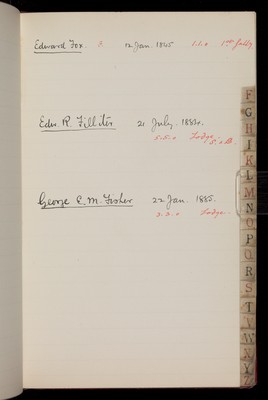 Edward Fox. 3. 12 Jan. 1865 1.1.0
Edw. R. Filliter 21 July. 1884.
5.5.0 Lodge
George C. M. Fisher 22 Jan. 1885.
3.3.0 Lodge
F
G
H
I
K
L
M
N
O
P
Q
R
S
T
V
W
X
Y
Z